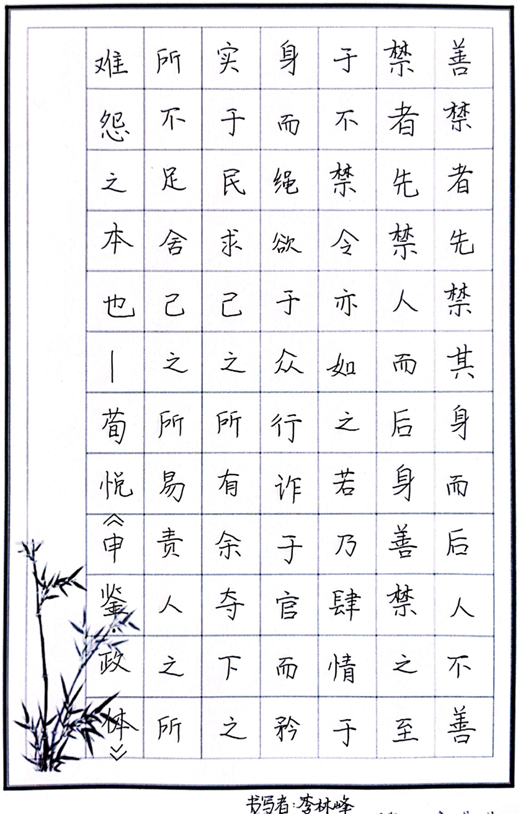 善禁者先禁其身而后人不善
禁者先禁人而后身善禁之至
于不禁令亦如之若乃肆情于
身而绳欲于众行诈于官而矜
实于民求己之所有余夺下之
所不足舍己之所易责人之所
难怨之本也—荀悦《申鉴政体》
书写者:李林峰